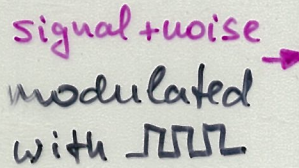 signal+noise
modulated
with